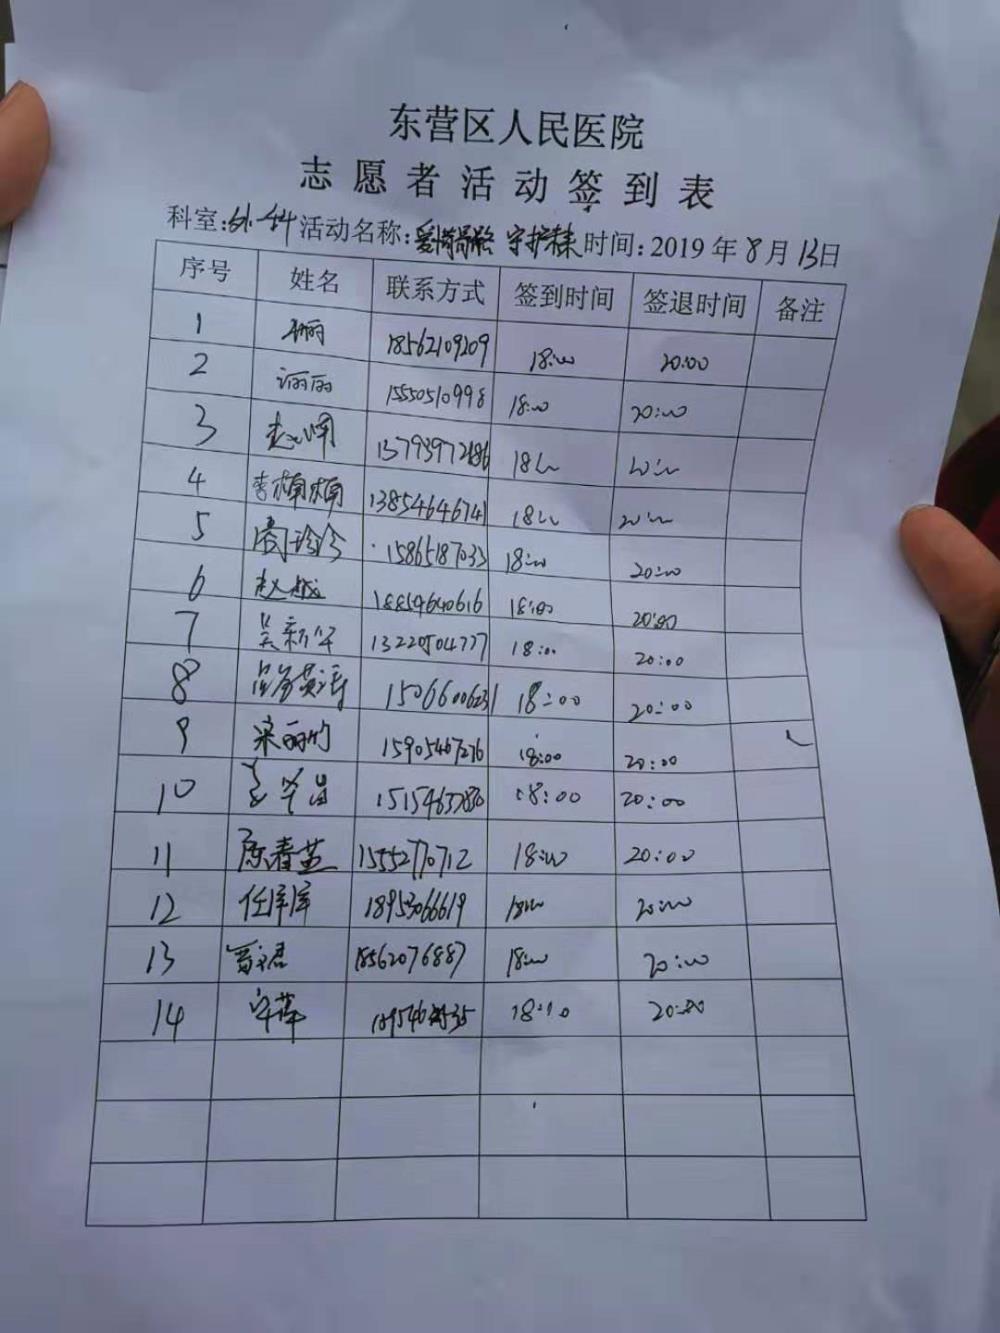 东营区人民医院
志愿者活动签到表
科室:外科 活动名称: 守护 时间:2019年8月13日
序号 姓名 联系方式 签到时间 签退时间 备注
1 18562109209 18:00 20:00
2 丽丽 15550510998 18:00 20:00
3 18:00 20:00
4 李楠楠 13854646741 18:00 20:00
5 周珍珍 15865187033 18:00 20:00
6 赵越 18854640616 18:00 20:00
7 吴新华 13220504777 18:00 20:00
8 15066006231 18:00 20:00
9 梁丽竹 15905467276 18:00 20:00
10 18:00 20:00
11 陈春芝 15552770712 18:00 20:00
12 任库库 18953066619 18:00 20:00
13 18562076887 18:00 20:00
14 18:10 20:00